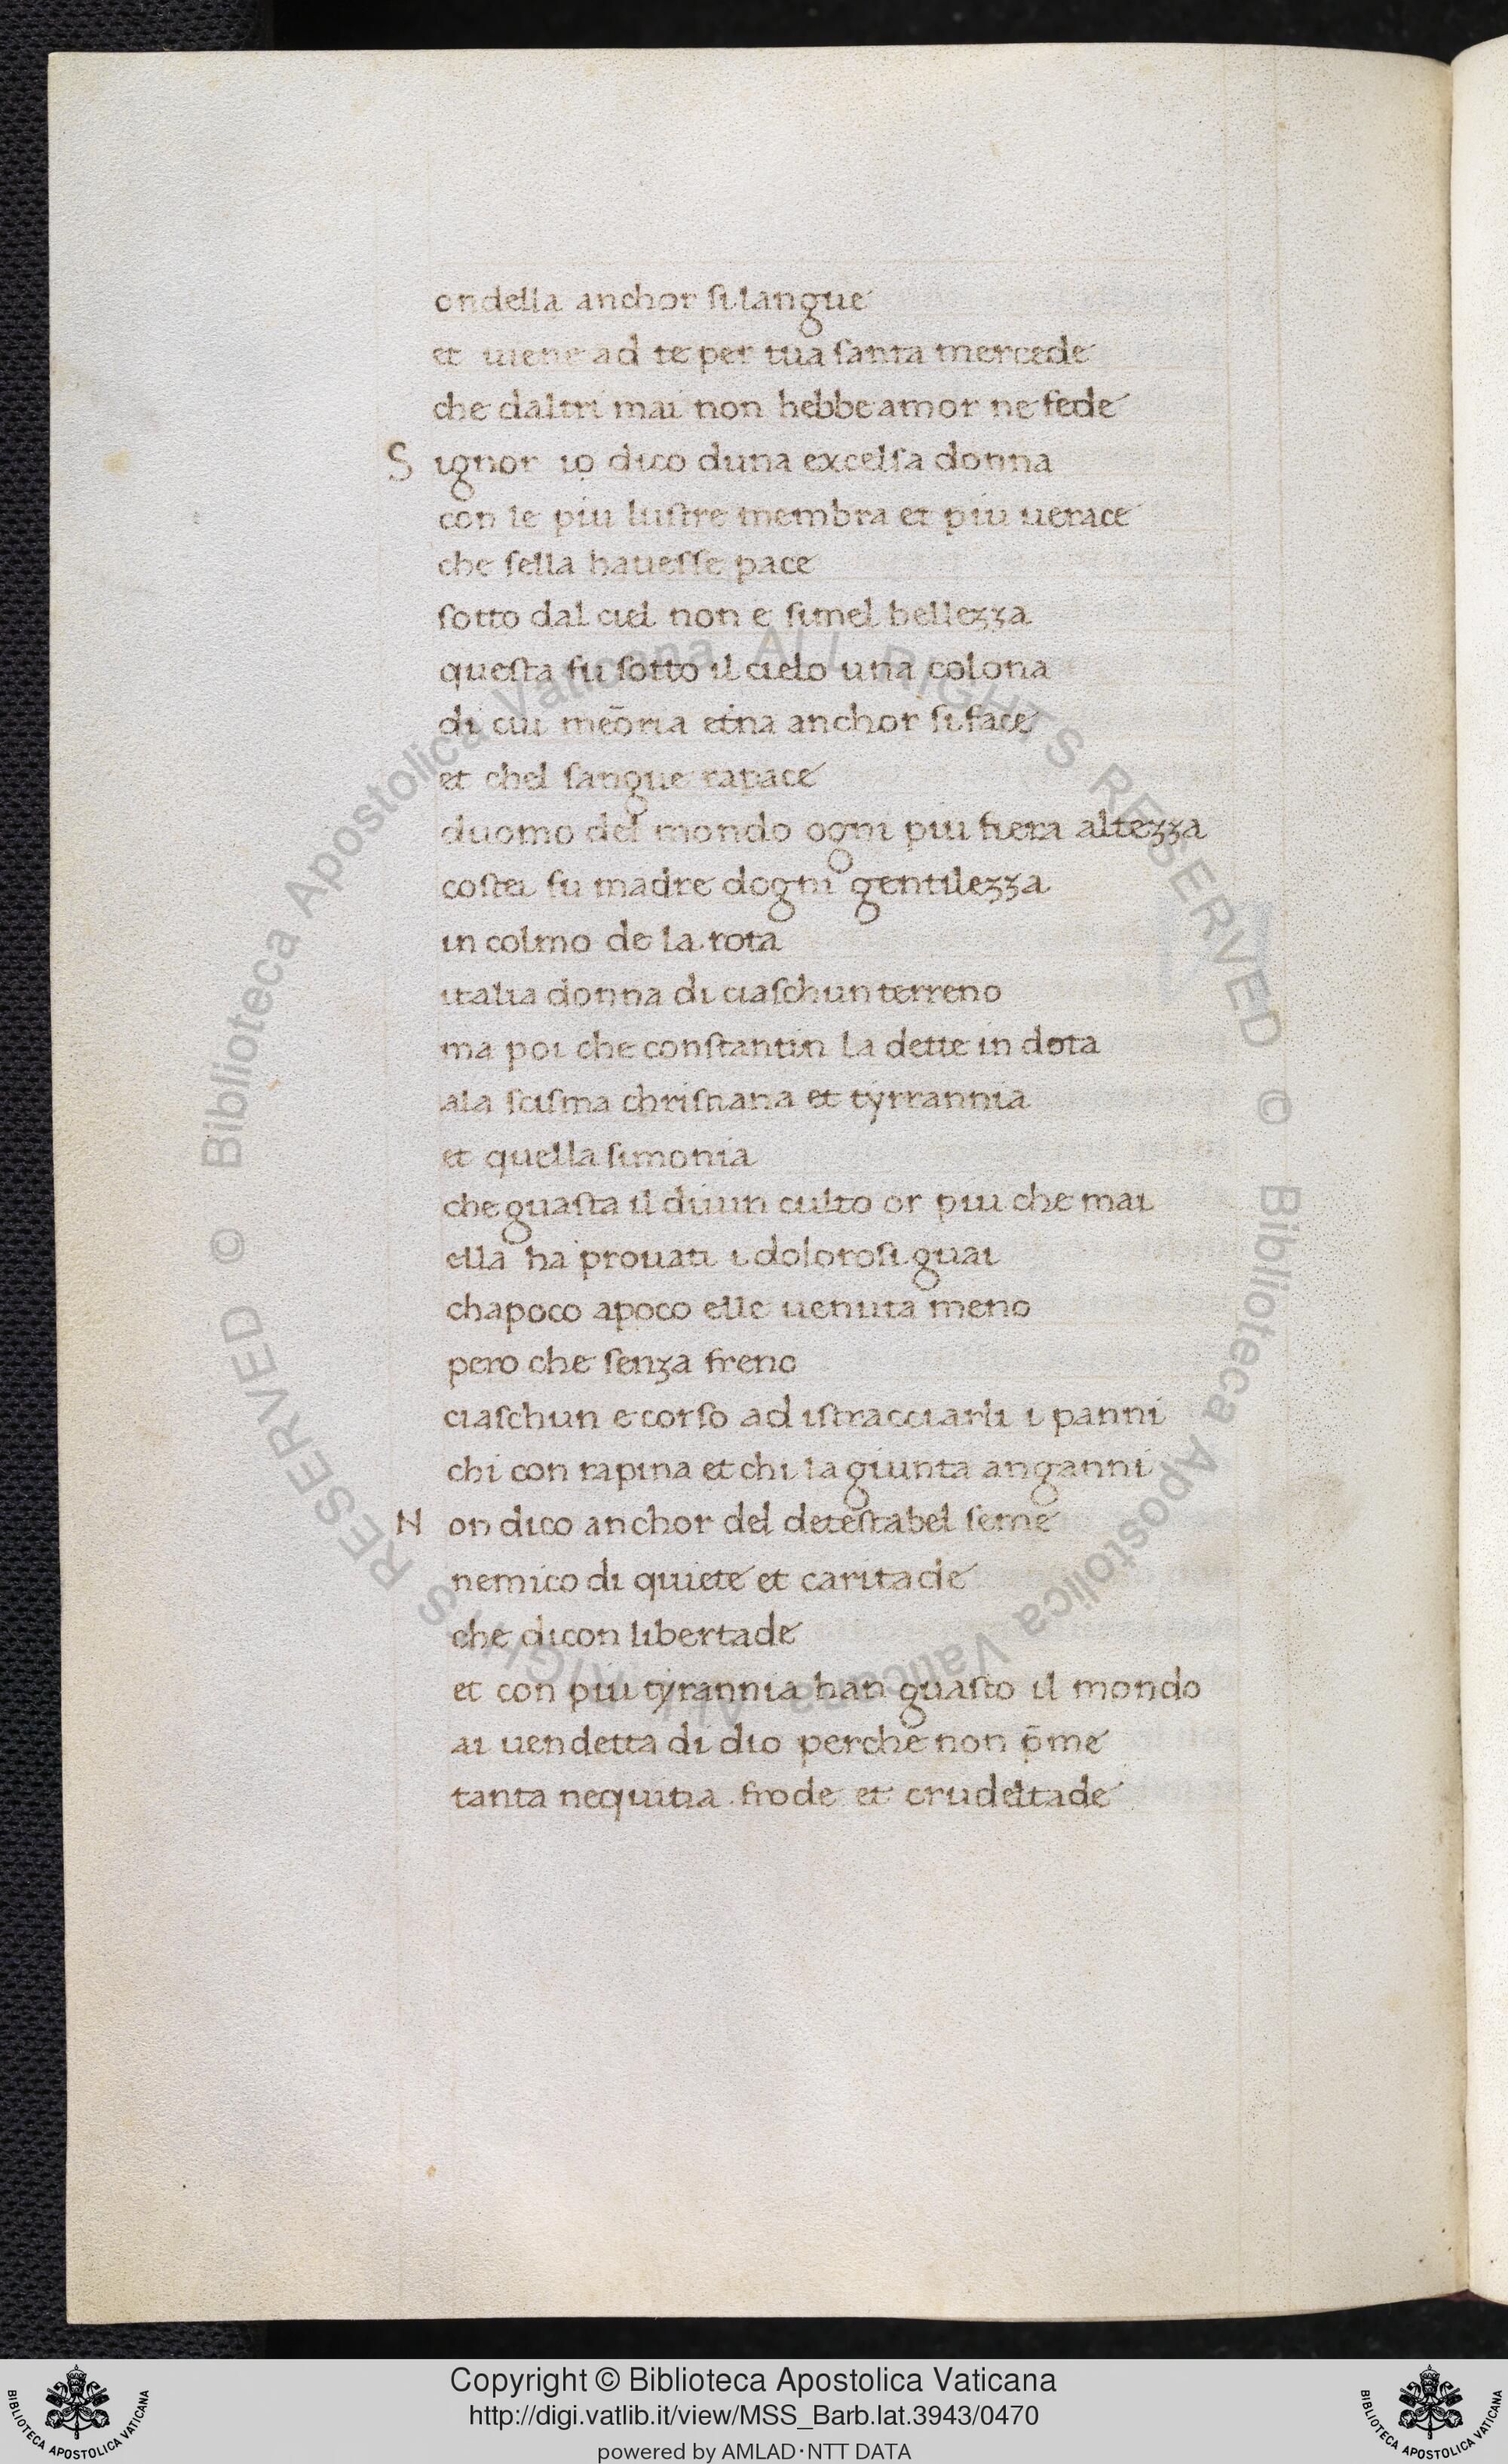 ondella anchor si langue
et uiene ad te per tua santa mercede
che daltri mai non hebbe amor ne fede
S ignor io dico duna excelsa donna
con le piu lustre membra et piu uerace
che sella hauesse pace
sotto dal ciel non e simel bellezza
questa fu sotto il cielo una colona
di cui mēoria etna anchor si face
et chel sangue rapace
duomo del mondo ogni piu fiera altezza
costei fu madre dogni gentilezza
in colmo de la rota
italia donna di ciaschun terreno
ma poi che constantin la dette in dota
ala scisma christiana et tyrrannia
et quella simonia
che guasta il diuin culto or piu che mai
ella ha prouati i dolorosi guai
chapoco apoco elle uenuta meno
pero che senza freno
ciaschun e corso ad istracciarli i panni
chi con rapina et chi la giunta anganni
N on dico anchor del detestabel seme
nemico di quiete et caritade
che dicon libertade
et con piu tyrannia han guasto il mondo
ai uendetta di dio perche non p̄me
tanta nequitia frode et crudeltade
© Biblioteca Apostolica Vaticana ALL RIGHTS RESERVED
© Biblioteca Apostolica Vaticana ALL RIGHTS RESERVED
Copyright © Biblioteca Apostolica Vaticana
http://digi.vatlib.it/view/MSS_Barb.lat.3943/0470
powered by AMLAD·NTT DATA
BIBLIOTECA APOSTOLICA VATICANA
BIBLIOTECA APOSTOLICA VATICANA